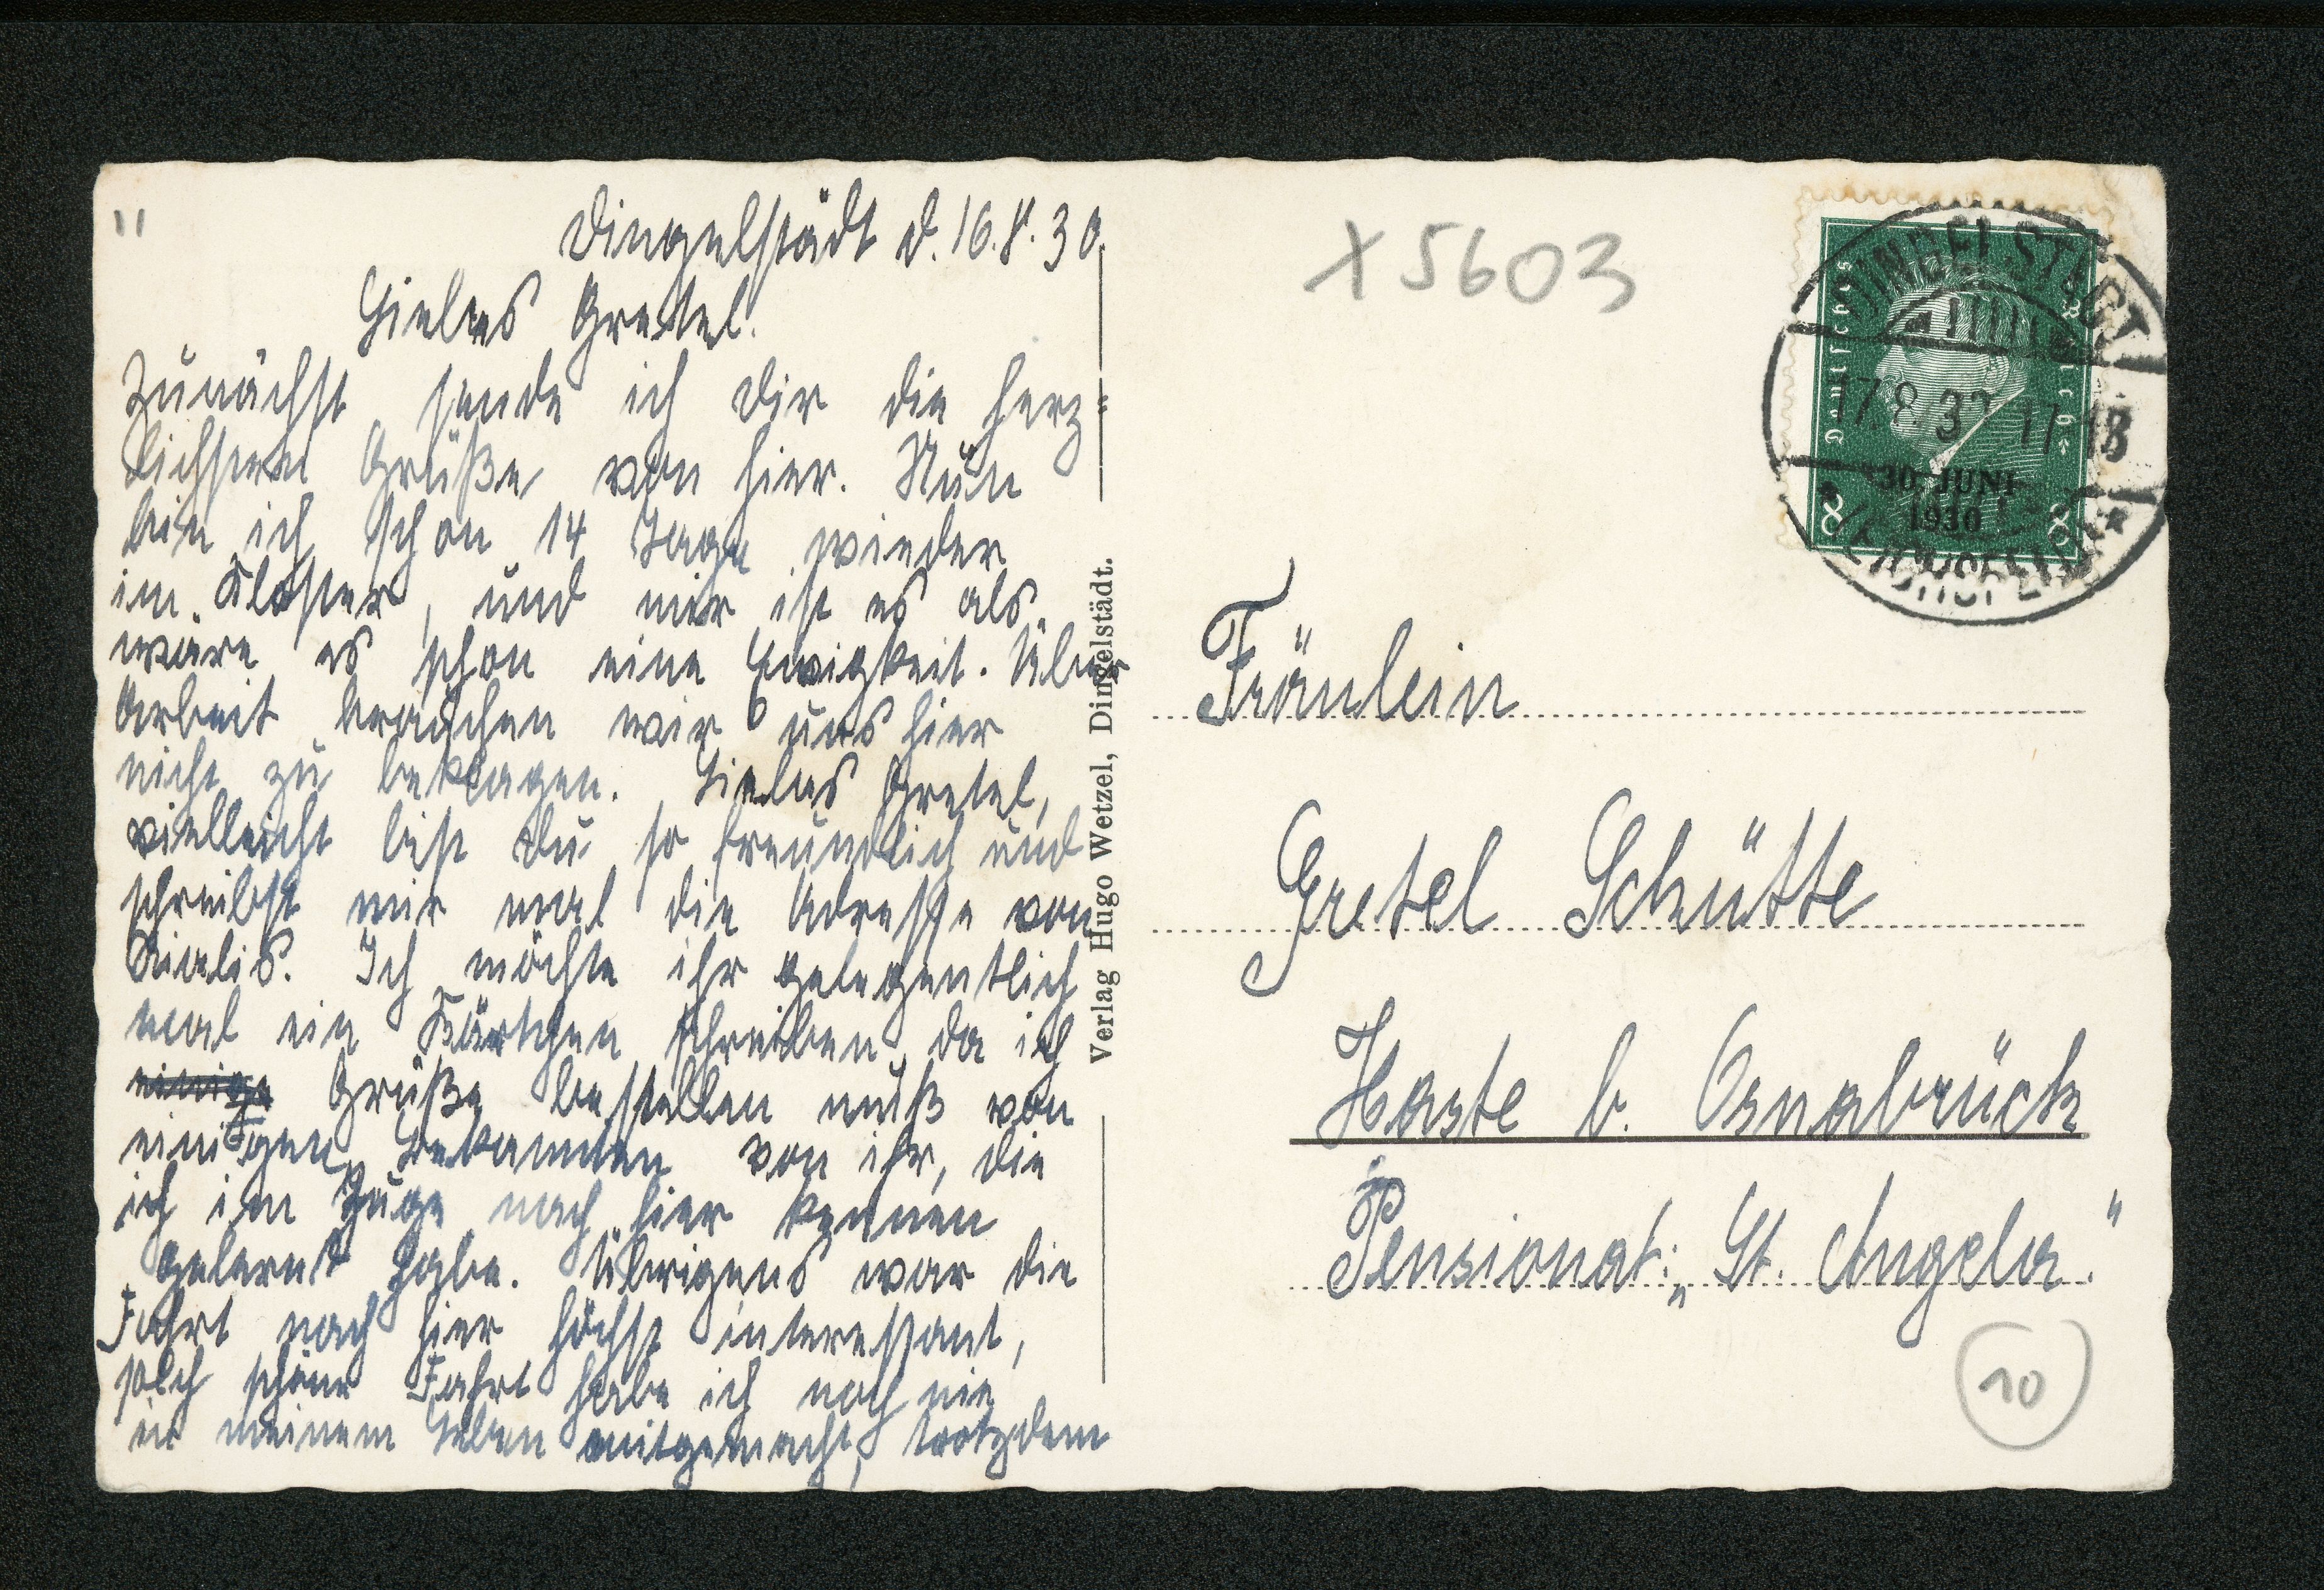 Dingelstädt d. 16.8.30.
Liebes Gretel.
Zunächst sende ich Dir die herz=
lichsten Grüße von hier. Nun
bin ich schon 14 Tage wieder
im Kloster, und mir ist es als
wäre es schon eine Ewigkeit. Über
Arbeit brauchen wir uns hier
nicht zu beklagen. Liebes Gretel,
vielleicht bist Du so freundlich und
schreibst mir mal die Adresse von
Ich möchte ihr gelegentlich
mal ein Kärtchen schreiben, da ich
einige Grüße bestellen muß von
einigen Bekannten von ihr, die
ich im Zuge nach hier kennen
gelernt habe. Übrigens war die
Fahrt nach hier höchst interessant,
solch schöne Fahrt habe ich noch nie
in meinem Leben mitgemacht, trotzdem
Verlag Hugo Wetzel, Dingelstädt.
X 5603
Deutsches Reich
DINGELSTÄDT
17.8.30 17-18
(EICHSFELD)
30. JUNI
1930
8 8
Fräulein
Gretel Schütte
Haste b. Osnabrück
Pensionat: „St. Angela."
10